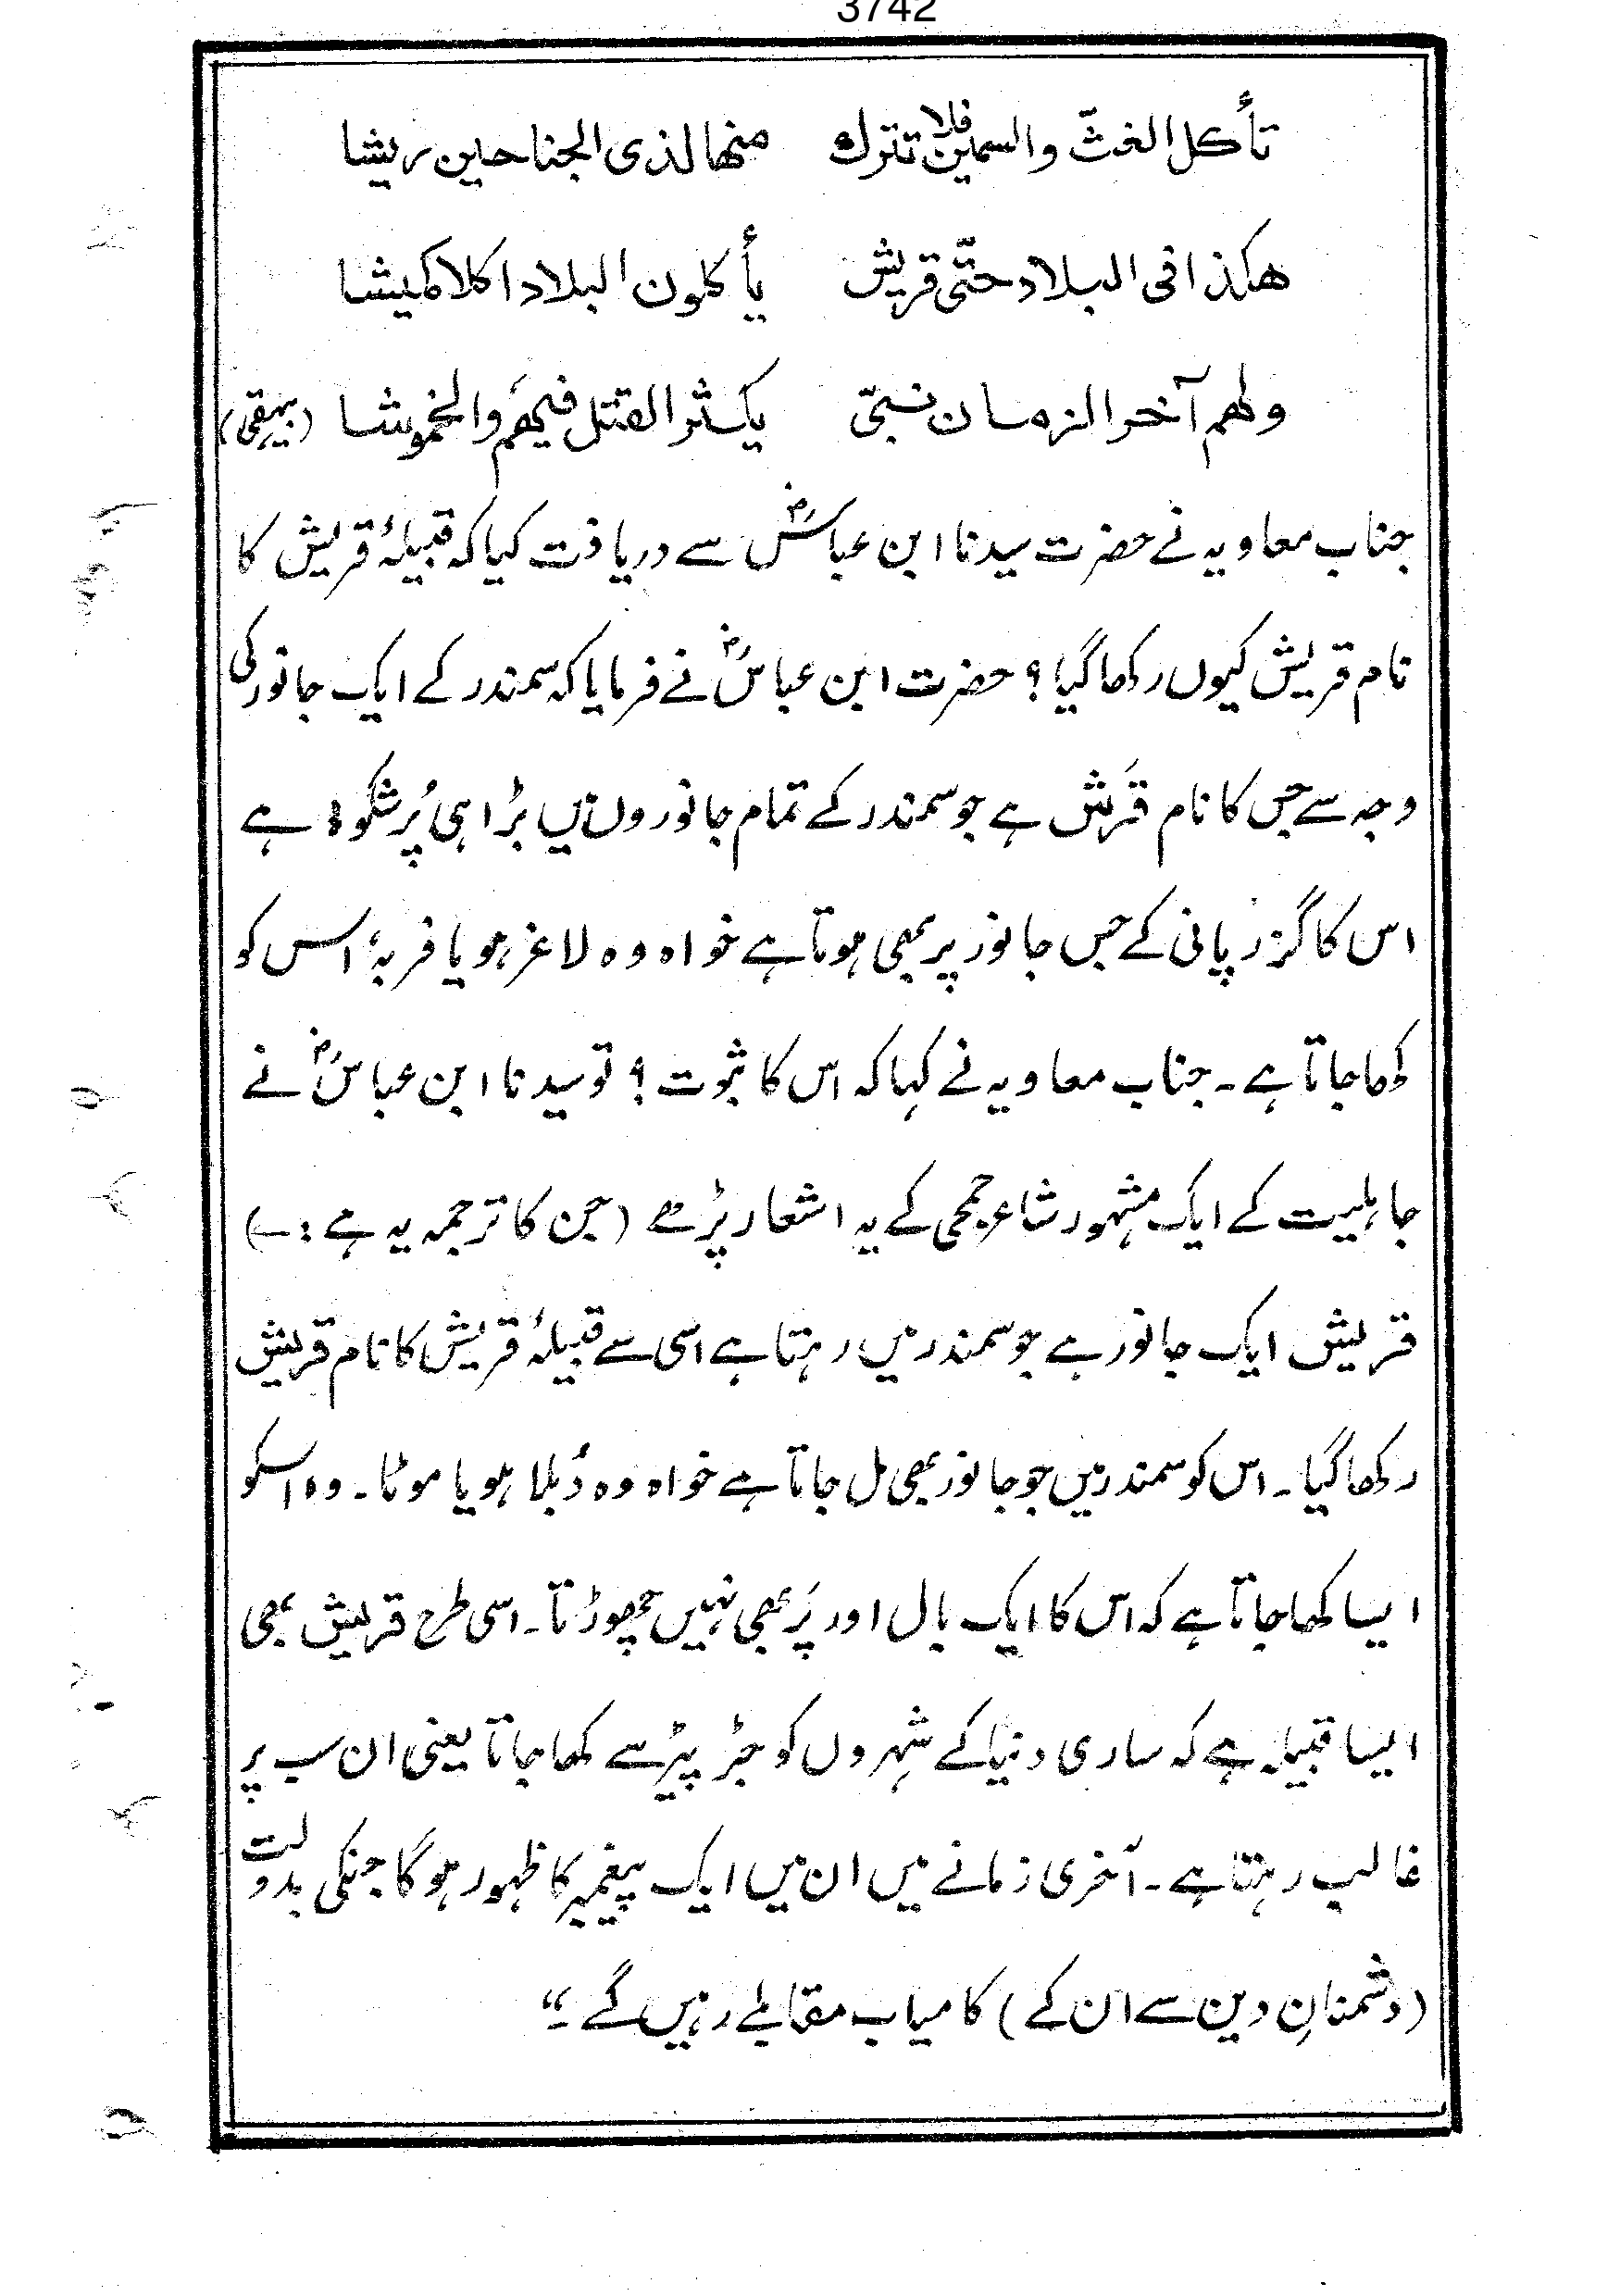 3742
تأكل الغثّ والسمين فلا تترك منها لذى الجناحين ريشا
هكذا فى البلاد حتّى قريش يأكلون البلاد اكلا كميشا
ولهم آخر الزمان نبىّ يكثر القتل فيهم والخموشا (بیہقی)
جناب معاویہ نے حضرت سیدنا ابن عباسؓ سے دریافت کیا کہ قبیلۂ قریش کا
نام قریش کیوں رکھا گیا؟ حضرت ابن عباسؓ نے فرمایا کہ سمندر کے ایک جانور کی
وجہ سے جس کا نام قَرش ہے جو سمندر کے تمام جانوروں میں بڑا ہی پُرشکوہ ہے
اس کا گزر پانی کے جس جانور پر بھی ہوتا ہے خواہ وہ لاغر ہو یا فربہ، اس کو
کھا جاتا ہے۔ جناب معاویہ نے کہا کہ اس کا ثبوت؟ تو سیدنا ابن عباسؓ نے
جاہلیت کے ایک مشہور شاعر جمحی کے یہ اشعار پڑھے (جن کا ترجمہ یہ ہے:۔)
قریش ایک جانور ہے جو سمندر میں رہتا ہے اسی سے قبیلۂ قریش کا نام قریش
رکھا گیا۔ اس کو سمندر میں جو جانور بھی مل جاتا ہے خواہ وہ دُبلا ہو یا موٹا۔ وہ اسکو
ایسا کھا جاتا ہے کہ اس کا ایک بال اور پَر بھی نہیں چھوڑتا۔ اسی طرح قریش بھی
ایسا قبیلہ ہے کہ ساری دنیا کے شہروں کو جڑ پیڑ سے کھا جاتا یعنی ان سب پر
غالب رہتا ہے۔ آخری زمانے میں ان میں ایک پیغمبر کا ظہور ہوگا جنکی بدولت
(دشمنانِ دین سے ان کے) کامیاب مقابلے رہیں گے۔"